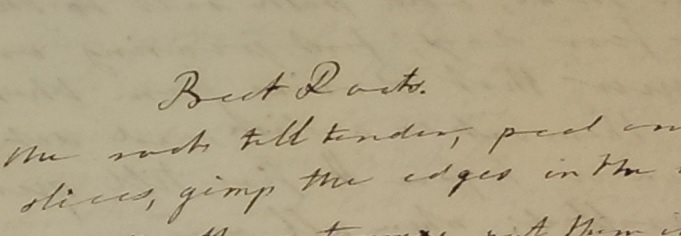 Beet Roots.
the roots till tender, peel
slices, gimp the edges in the
them